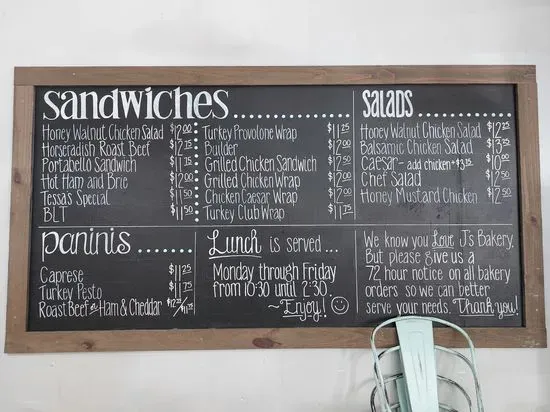 Sandwiches
Honey Walnut Chicken Salad $12.00
Horseradish Roast Beef $12.75
Portabello Sandwich $11.75
Hot Ham and Brie $12.00
Tessa's Special $11.50
BLT $11.50
Turkey Provolone Wrap $11.25
Builder $12.00
Grilled Chicken Sandwich $12.50
Grilled Chicken Wrap $12.00
Chicken Caesar Wrap $12.00
Turkey Club Wrap $11.75
Salads
Honey Walnut Chicken Salad $12.25
Balsamic Chicken Salad $13.75
Caesar - add chicken +$3.75 $10.00
Chef Salad $12.50
Honey Mustard Chicken $12.50
Paninis
Caprese $11.25
Turkey Pesto $11.75
Roast Beef or Ham & Cheddar
Lunch is served...
Monday through Friday
from 10:30 until 2:30.
~Enjoy!
We know you Love J's Bakery,
But please give us a
72 hour notice on all bakery
orders so we can better
serve your needs. Thank you!